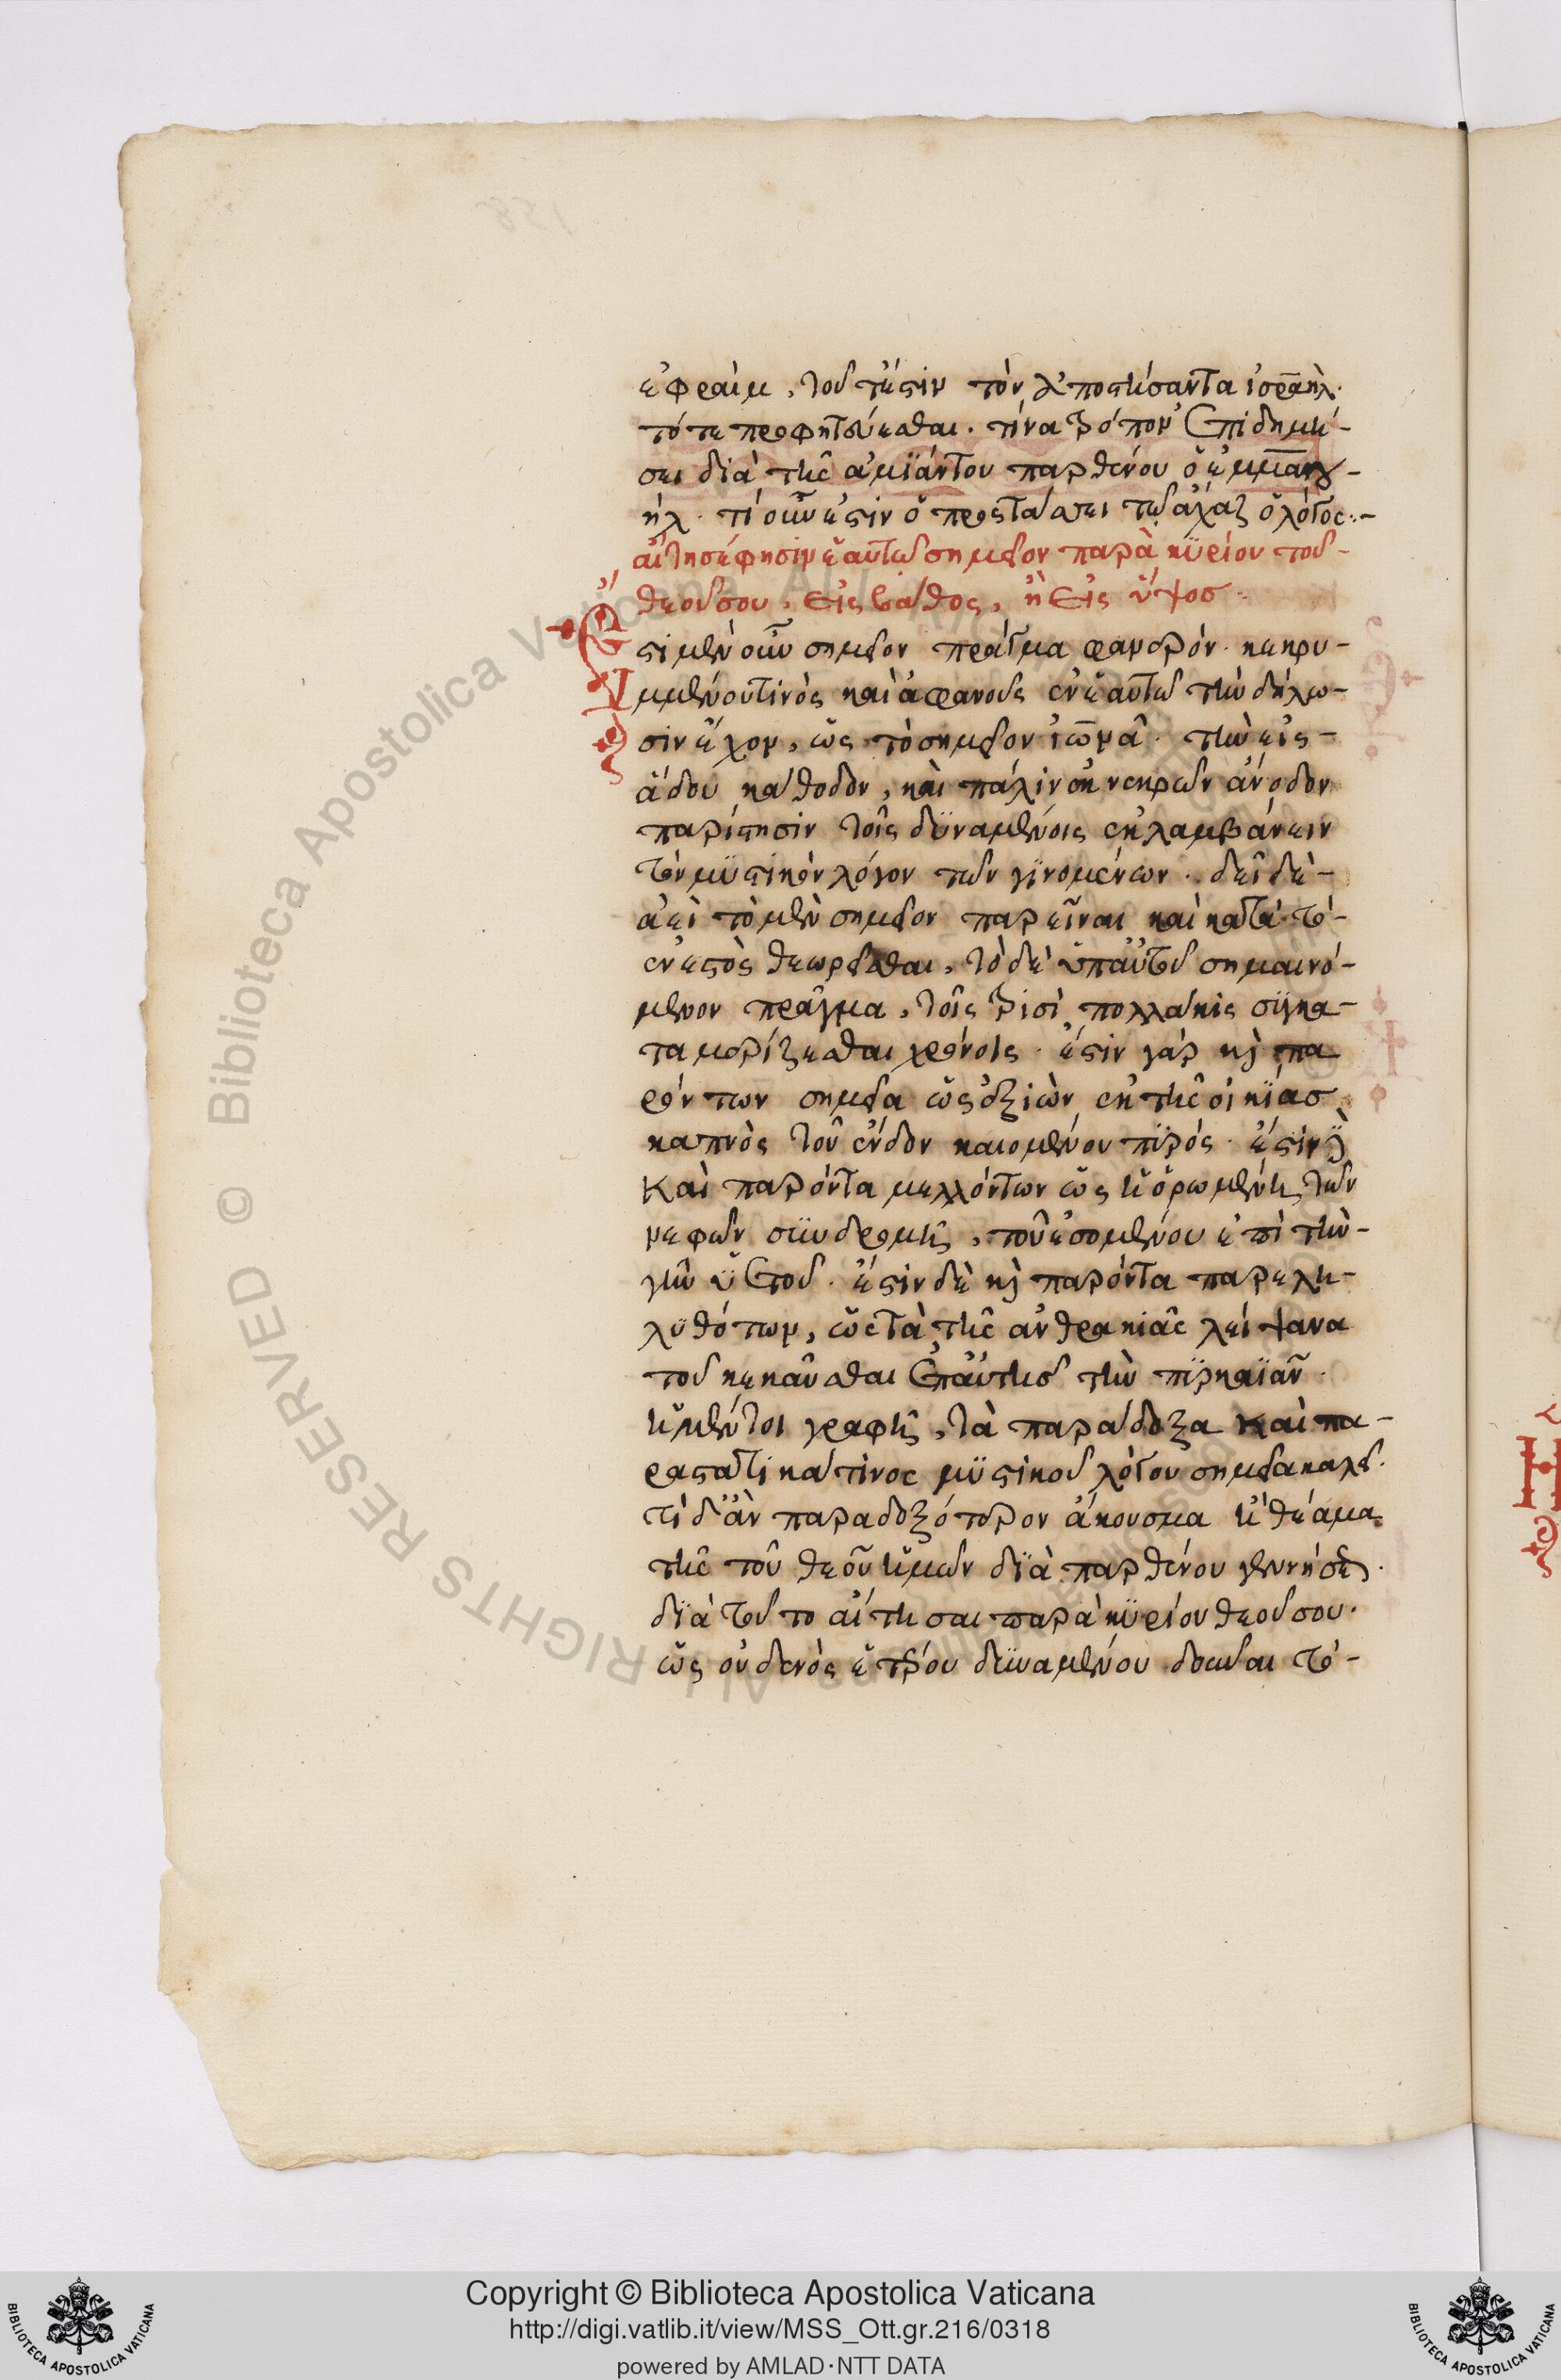 ἐφραὶμ, τουτέστιν τὸν ἀποστήσαντα ἰσραηλ·
τότε προφητεύεσθαι· τίνα τρόπον ἐπιδημή-
σει διὰ τῆς ἀμϊάντου παρθένου ὁ ἐμμανου-
ήλ· τί οὖν ἐστιν ὃ προστάσσει τῷ ἀχαζ ὁ λόγος:-
αἴτησέ φησιν ἑαυτῶ σημεῖον παρὰ κϋρίου τοῦ-
θεοῦ σου, εἰς βάθος, ἢ εἰς ὕψοσ·
Ἔστι μὲν οὖν σημεῖον πρᾶγμα φανερόν· κεκρυ-
μμένου τινὸς καὶ ἀφανοῦς ἐν ἑαυτῶ τὴν δήλω-
σιν ἔχον, ὡς τὸ σημεῖον ἰωνᾶ· τὴν εἰς-
ἅδου κάθοδον, καὶ πάλιν ἐκ νεκρῶν ἄνοδον
παρίστησιν τοῖς δϋναμένοις ἐκλαμβάνειν
τὸν μϋστικὸν λόγον τῶν γϊνομένων· δεῖ δὲ-
ἀεὶ τὸ μὲν σημεῖον παρεῖναι καὶ κατὰ τὸ-
ἐνεστὸς θεωρεῖσθαι, τὸ δὲ ὑπ' αὐτοῦ σημαινό-
μενον πρᾶγμα, τοῖς τρισὶ πολλάκις σϋγκα-
ταμερίζεσθαι χρόνοις· ἔστιν γὰρ καὶ πα
ρόντων σημεῖα ὡς ἐξιὼν ἐκ τῆς οἰκίασ
καπνὸς τοῦ ἔνδον καιομένου πϋρός· ἔστιν δὲ
καὶ παρόντα μελλόντων ὡς ἡ ὁρωμένη τῶν
νεφῶν συνδρομῆς, τοῦ ἐσομένου ἐπὶ τὴν-
γῆν ὑετοῦ· ἔστιν δὲ καὶ παρόντα παρελη-
λϋθότων, ὡς τὰ τῆς ἀνθρακιᾶς λείψανα
τοῦ κεκαῦσθαι ἐπ' αὐτῆσ τὴν πϋρκαϊάν·
ἡ μέντοι γραφῆς, τὰ παράδοξα καὶ πα-
ραστατικά τινος μϋστικοῦ λόγου σημεῖα καλεῖ·
τί δ' ἂν παραδοξότερον ἄκουσμα ἢ θέαμα
τῆς τοῦ θεοῦ ἡμῶν δϊὰ παρθένου γεννήσεως·
δϊὰ τοῦτο αἴτησαι παρὰ κϋρίου θεοῦ σου·
ὡς οὐδενὸς ἑτέρου δυναμένου δοῦναι τὸ-
Copyright © Biblioteca Apostolica Vaticana
http://digi.vatlib.it/view/MSS_Ott.gr.216/0318
powered by AMLAD·NTT DATA
BIBLIOTECA APOSTOLICA VATICANA
BIBLIOTECA APOSTOLICA VATICANA
© Biblioteca Apostolica Vaticana ALL RIGHTS RESERVED